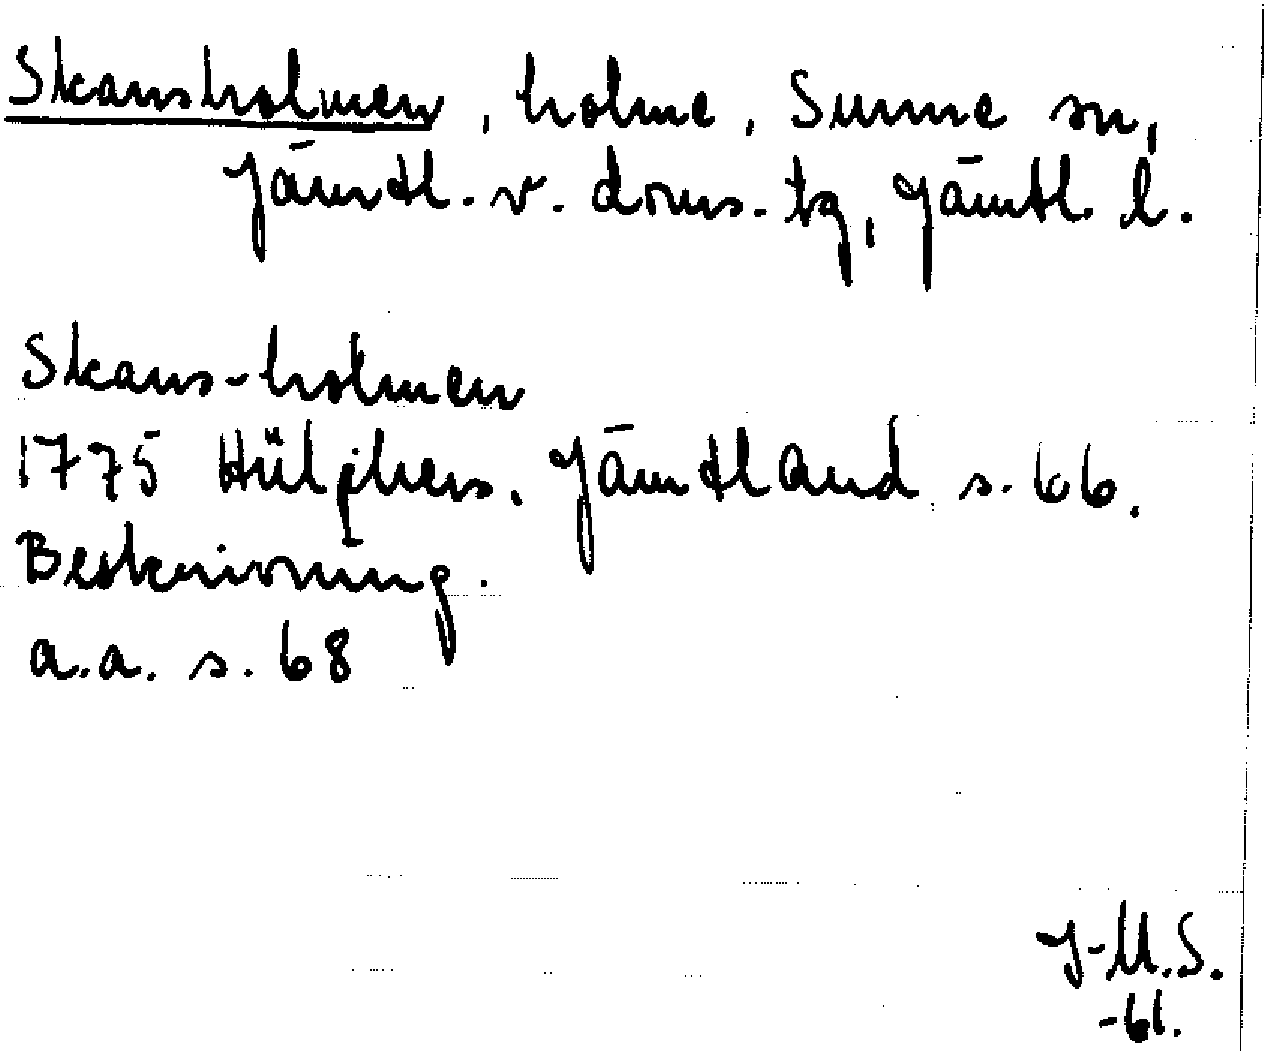 Skansholmen, holme, Sunne sn,
Jämtl. v. doms. tg, Jämtl. l.
Skans-holmen
1775 Hülphers. Jämtland s. 66.
Beskrivning.
a.a. s. 68
J-M.S.
-61.